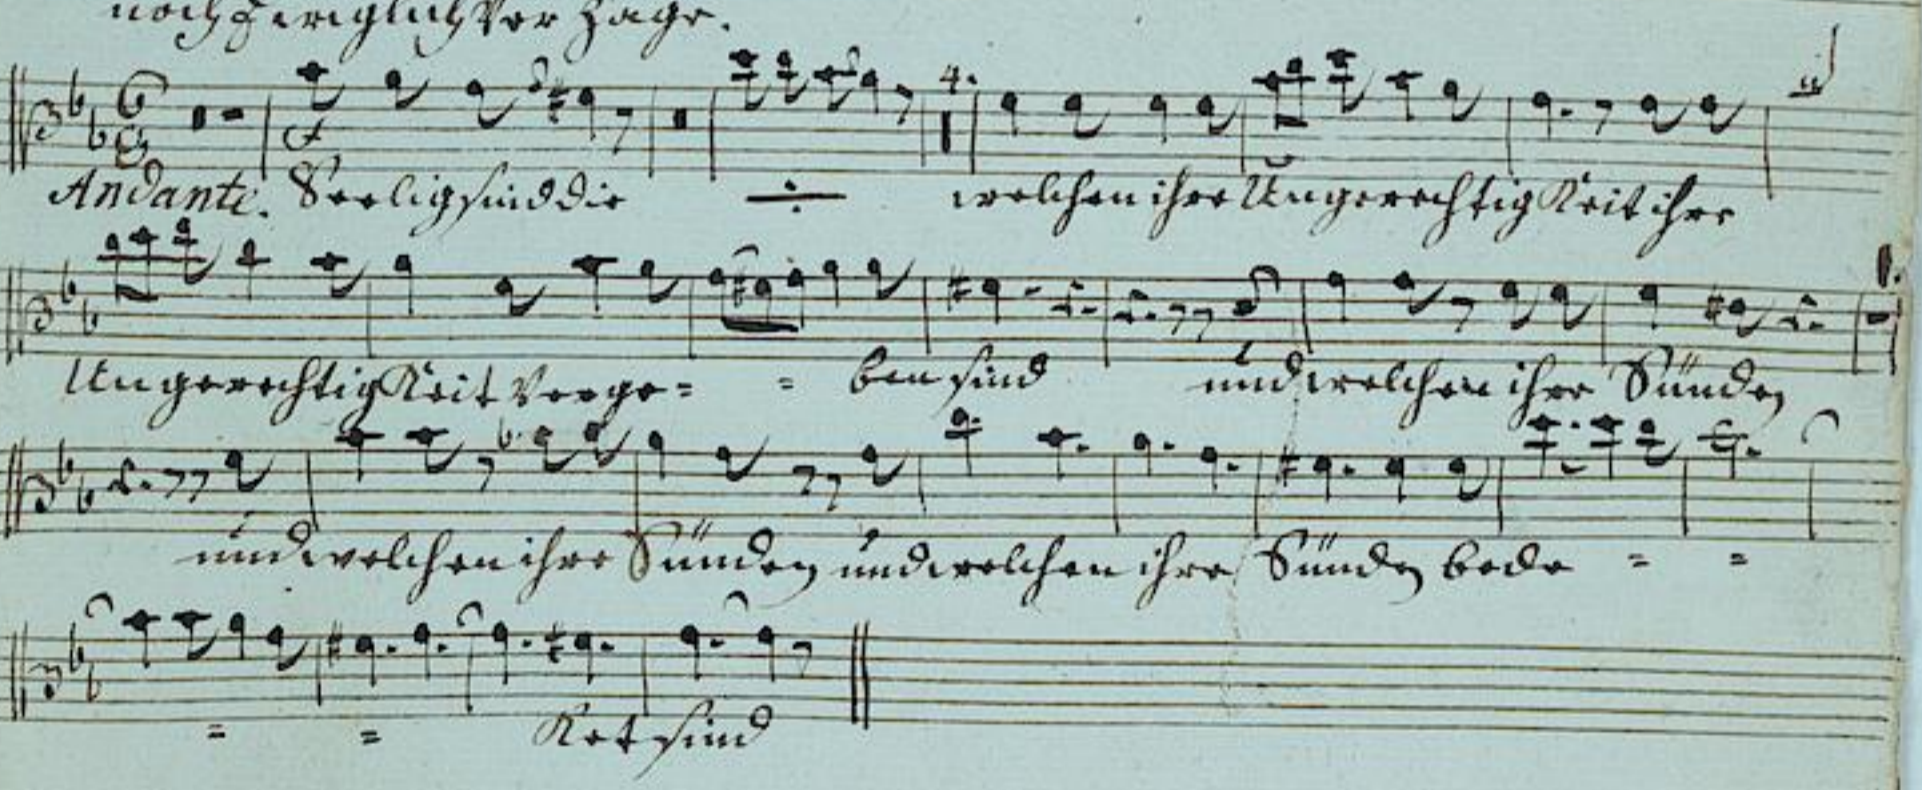 noch Vor Zage.
4.
Andante. Seelig sind die ÷ welchen ihre Ungerechtigkeit ihre
Ungerechtigkeit Verge= = ben sind und welchen ihre Sünden
und welchen ihre Sünden und welchen ihre Sünden bede = =
= = Ket sind